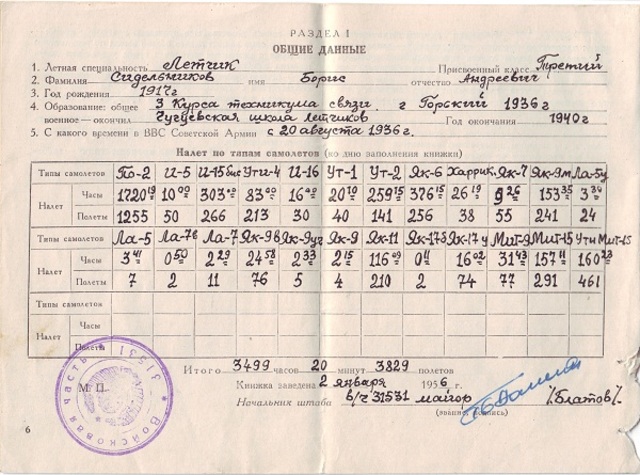 РАЗДЕЛ I
ОБЩИЕ ДАННЫЕ
1. Летная специальность Летчик Присвоенный класс Третий
2. Фамилия Сидельников имя Борис отчество Андреевич
3. Год рождения 1917 г
4. Образование: общее 3 Курса техникума связи г Горский 1936 г
военное — окончил Чугуевская школа летчиков Год окончания 1940 г
5. С какого времени в ВВС Советской Армии с 20 августа 1936 г.
Налет по типам самолетов (ко дню заполнения книжки)
Типы самолетов По-2 И-5 И-15бис УТИ-4 И-16 Ут-1 Ут-2 Як-6 Харрик. Як-7 Як-9м Ла-5у
Налет Часы 1720 19 10 00 303 83 00 16 20 10 259 15 376 15 26 19 9 26 153 35 3
Полеты 1255 50 266 213 30 40 141 256 38 55 241 24
Типы самолетов Ла-5 Ла-7в Ла-7 Як-9в Як-9уч Як-9 Як-11 Як-17 Як-17 у Миг-9 Миг-15 Ути Миг-15
Налет Часы 3 41 0 50 2 29 24 58 2 33 2 15 116 09 0 11 16 02 31 43 157 11 160 23
Полеты 7 2 11 76 5 4 210 2 74 77 291 461
Типы самолетов
Налет Часы
Полеты
Итого 3499 часов 20 минут 3829 полетов
Книжка заведена 2 января 1956 г.
М. П.
Начальник штаба в/ч 31531 майор /Блатов/
(звание, подпись)
Войсковая часть * 31531 *
6